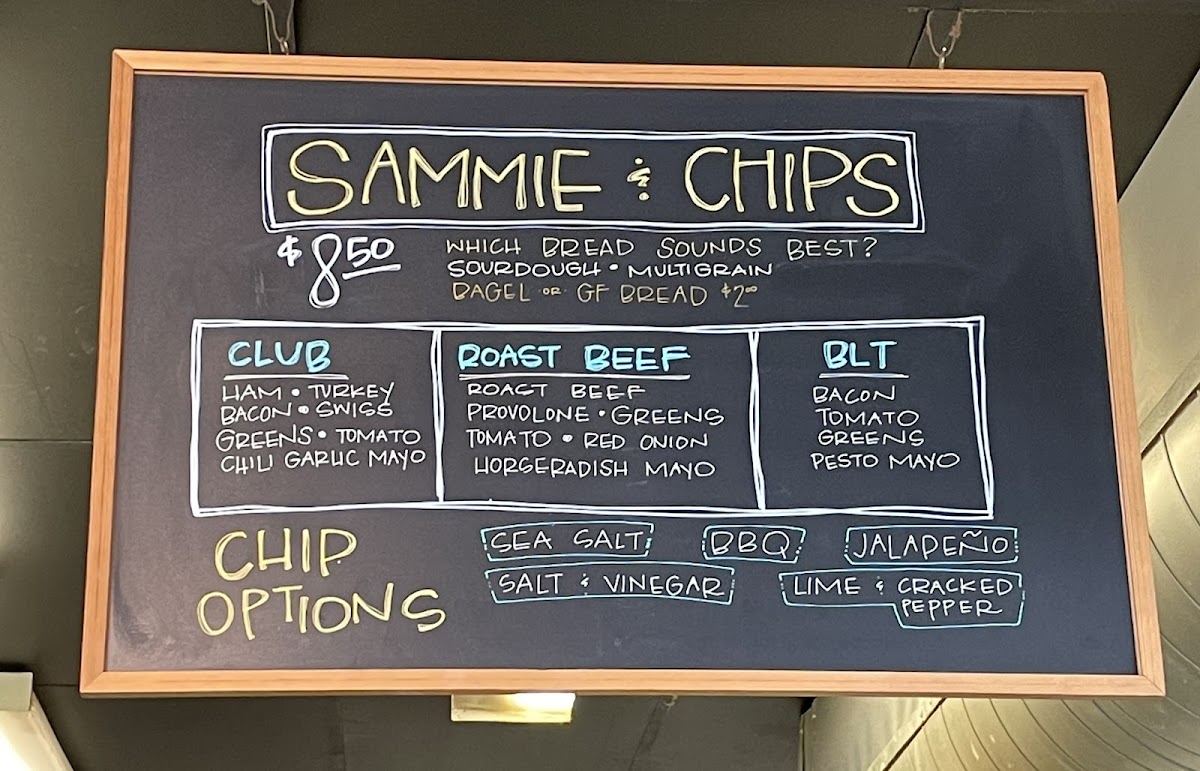 SAMMIE & CHIPS
$8.50
WHICH BREAD SOUNDS BEST?
SOURDOUGH • MULTIGRAIN
BAGEL OR GF BREAD $2.00
CLUB
HAM • TURKEY
BACON • SWISS
GREENS • TOMATO
CHILI GARLIC MAYO
ROAST BEEF
ROAST BEEF
PROVOLONE • GREENS
TOMATO • RED ONION
HORSERADISH MAYO
BLT
BACON
TOMATO
GREENS
PESTO MAYO
CHIP
OPTIONS
SEA SALT
BBQ
JALAPEÑO
SALT & VINEGAR
LIME & CRACKED
PEPPER